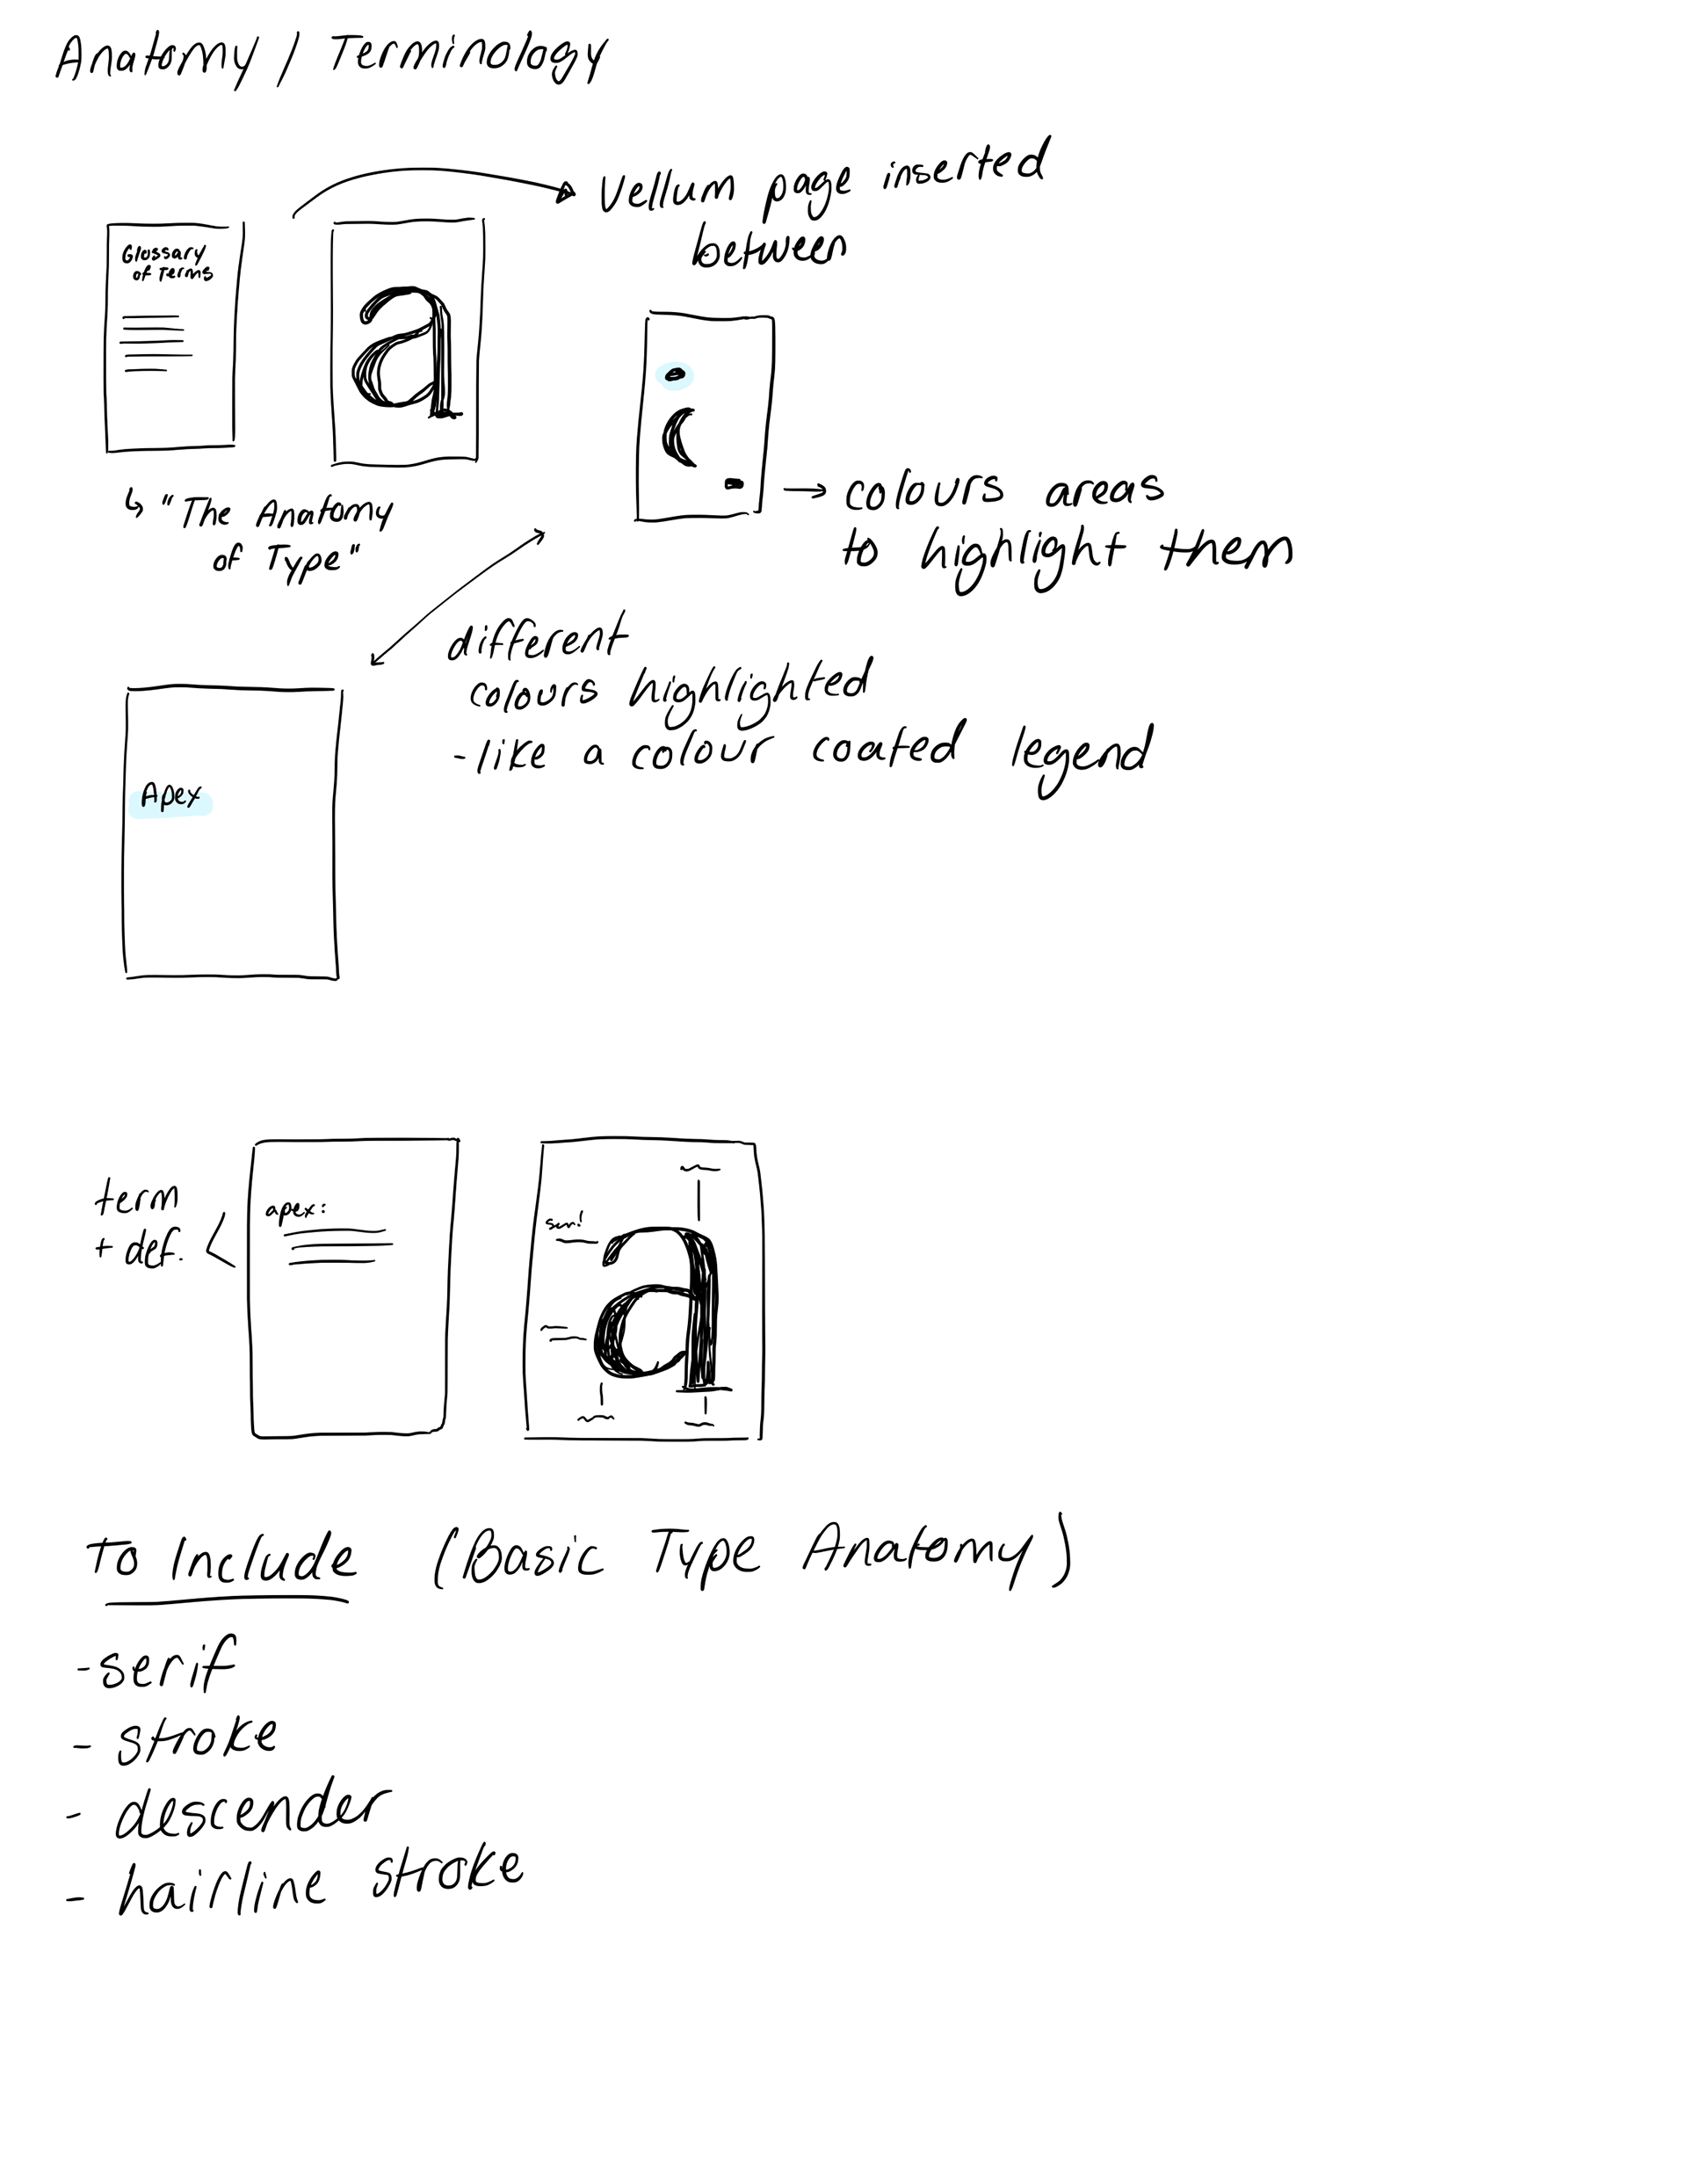 Anatomy / Terminology
Vellum page inserted
between
Glossary
of Terms
a
↳ "The Anatomy
of Type"
→ colours areas
to highlight them
different
colours highlighted
- like a colour coated legend
Apex
term
+ def.
apex:
a
To Include (Basic Type Anatomy)
- serif
- stroke
- descender
- hairline stroke